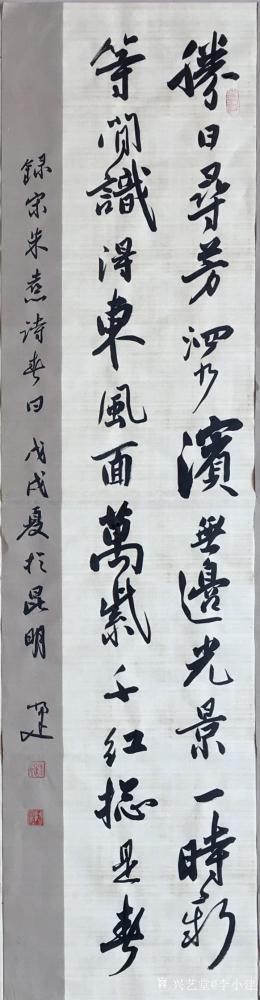 勝日尋芳泗水濱無邊光景一時新
等閒識得東風面萬紫千红総是春
録宋朱熹诗春日戊戌夏於昆明
兴艺堂@李小建